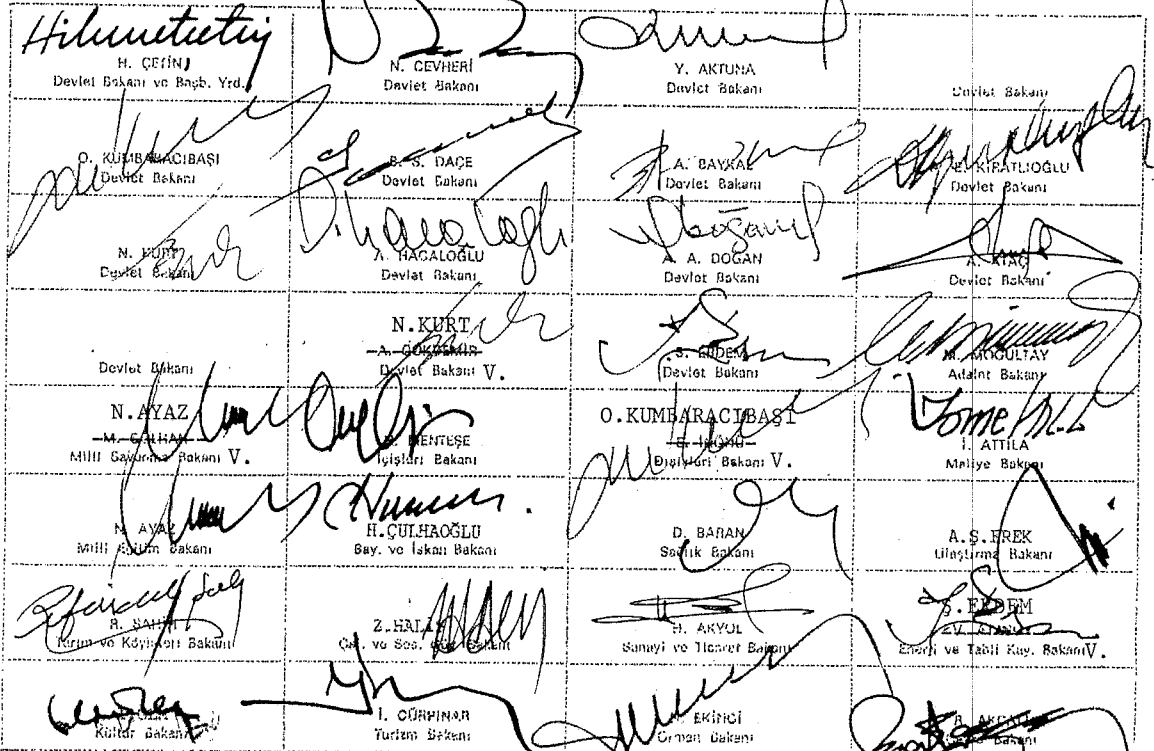 H. ÇETİN
Devlet Bakanı ve Başb. Yrd.
N. CEVHERİ
Devlet Bakanı
Y. AKTUNA
Devlet Bakanı
Devlet Bakanı
O. KUMBARACIBAŞI
Devlet Bakanı
B. S. DAÇE
Devlet Bakanı
A. BAYKAL
Devlet Bakanı
E. KIRATLIOĞLU
Devlet Bakanı
N. KURT
Devlet Bakanı
A. HACALOĞLU
Devlet Bakanı
A. A. DOĞAN
Devlet Bakanı
A. ATAÇ
Devlet Bakanı
Devlet Bakanı
N.KURT
A. GÖKDEMİR
Devlet Bakanı V.
S. ERDEM
Devlet Bakanı
M. MOĞULTAY
Adalet Bakanı
N.AYAZ
M. GÖLHAN
Milli Savunma Bakanı V.
MENTEŞE
İçişleri Bakanı
O.KUMBARACIBAŞI
E. İNÖNÜ
Dışişleri Bakanı V.
İ. ATTİLA
Maliye Bakanı
N. AYAZ
Milli Eğitim Bakanı
H.ÇULHAOĞLU
Bay. ve İskan Bakanı
D. BARAN
Sağlık Bakanı
A.Ş.EREK
Ulaştırma Bakanı
R. ŞAHİN
Tarım ve Köyişleri Bakanı
Z.HALİS
Çal. ve Sos. Güv. Bakanı
H. AKYOL
Sanayi ve Ticaret Bakanı
Ş.ERDEM
Enerji ve Tabii Kay. Bakanı V.
Kültür Bakanı
İ. GÜRPINAR
Turizm Bakanı
EKİNCİ
Orman Bakanı